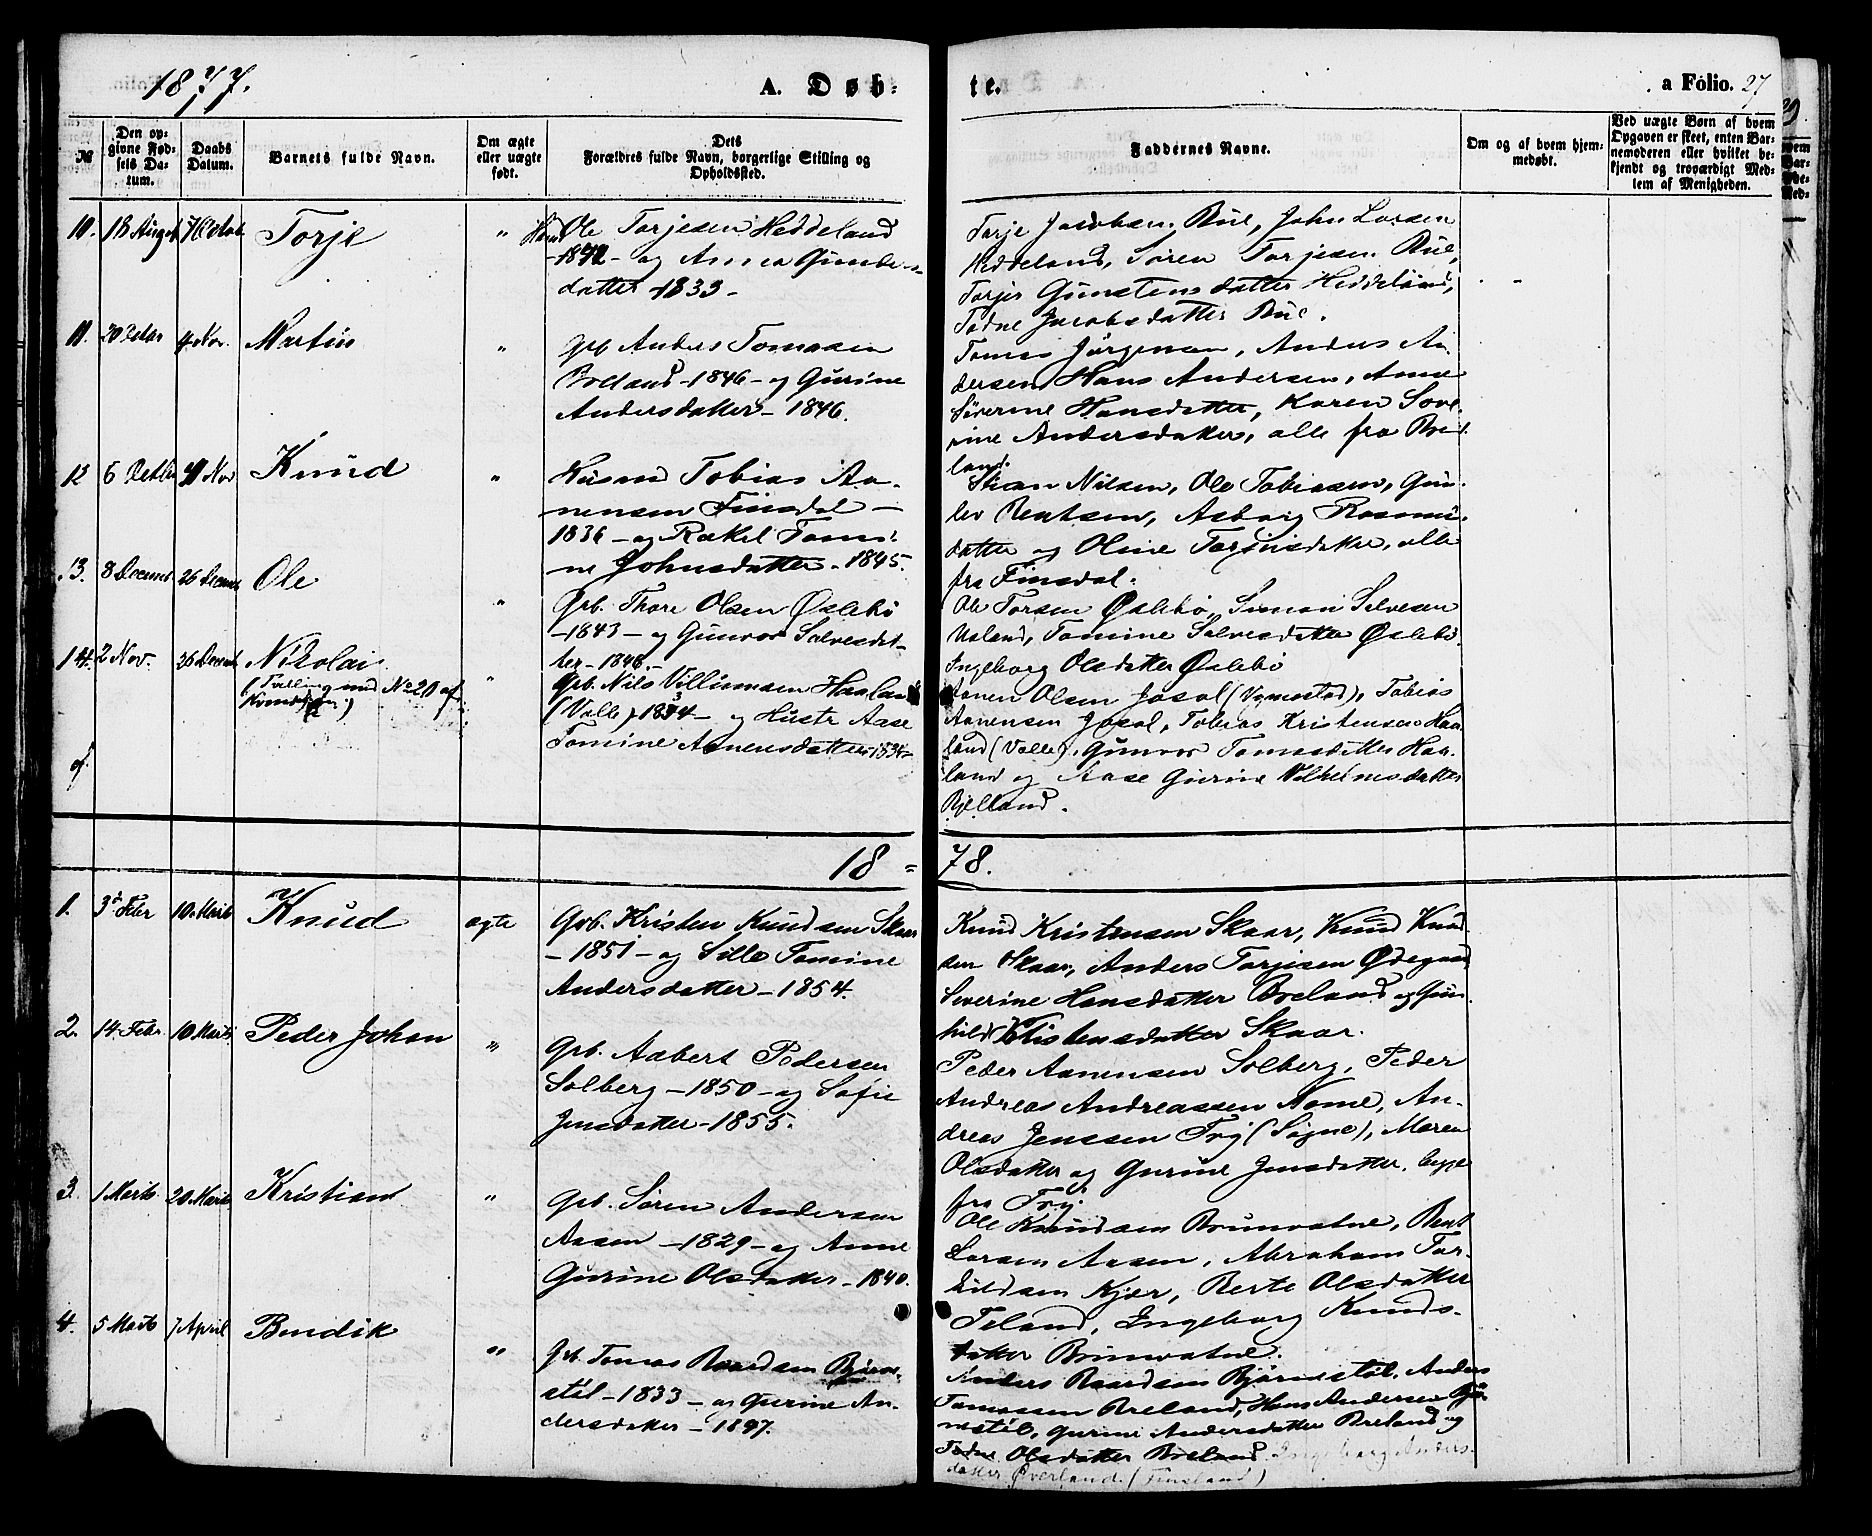 1877.
A. Døb=
te.
a Folio. 27
№
Den op=
givne Fød=
sels Da=
tum.
Daabs
Datum.
Barnets fulde Navn.
Om ægte
eller uægte
født.
Dets
Forældres fulde Navn, borgerlige Stilling og
Opholdssted.
Faddernes Navne.
Om og af hvem hjem=
medøbt.
Ved uægte Børn af hvem
Opgaven er skeet, enten Bar=
nemoderen eller hvilket be=
kjendt og troværdigt Med=
lem af Menigheden.
10. 18 August 7 Octob Torje "
Ole Torjesen Heddeland
og Anna
datter 1833 -
Torje Jacobsen Bue, John Larsen
Heddeland, Søren Torjesen Bue,
Torjer Gunstensdatter Heddeland,
Todne Jacobsdatter Bue.
11. 20 4 Nov. Martin "
Grb Anders Tomasen
1846 - og Gurine
Andersdatter - 1846.
Tomas Jørgensen, Anders An-
dersen Hans Andersen, Anne
Severine Hansdatter, Karen Seve-
rine Andersdatter, alle fra Bre-
land.
12 6 Nov Knud "
Husmd Tobias Aa-
nensen Finsdal -
1836 - og Rakel Tomi-
ne Johnsdatter - 1845.
Nilsen, Ole Tobiassen, Gun-
lev Bentsen, Asborg
datter og Oline datter, alle
fra Finsdal.
13. 8 Decembr 26 Decembr Ole "
Grb. Thore Olsen Øslebø
- 1843 - og Gunvor Salvesdat-
ter - 1848. -
Ole Torsen Øslebø, Simon Salvesen
Usland, Tomine Salvesdatter Øslebø
Ingeborg Olsdatter Øslebø
14. 2 Nov. 26 Decembr Nikolai "
(Tvilling med № 20 af
Kvindkjøn)
Grb. Nils Villiumsen Haaland
(Valle) 1834 - og Hustr Aase
Tomine Aanensdatter 1834 -
Aanen Olsen Josal (Vymestad), Tobias
Aanensen Josal, Tobias Kristensen Haa-
land (Valle), Gunvor Tomasdatter Haa-
land og Aase Gurine Vilhelmsdatter
Bjelland.
18 = 78.
1. 3' Febr 10 Marts Knud ægte
Grb. Kristen Knudsen Skaar
- 1851 - og Sille Tomine
Andersdatter - 1854.
Knud Kristensen Skaar, Knud Knud-
sen Skaar, Anders Torjesen Ødegaard
Severine Hansdatter Breland og Gun-
hild Kristensdatter Skaar.
2. 14. Febr. 10 Marts Peder Johan "
Grb. Aabert Pedersen
Solberg - 1850 - og Sofie
Jensdatter - 1855.
Peder Aanensen Solberg, Peder
Andreas Andreassen Nome, An-
dreas Jenssen Try (Søgne), Maren
Olsdatter og Gurine Jensdatter, begge
fra Try.
3. 1 Marts 20 Marts Kristian "
Grb. Søren Andersen
Aasen - 1829 - og Anne
Gurine Olsdatter - 1840.
Ole Knudsen Brunvatne, Bent
Larsen Aasen, Abraham Tor-
kildsen Kjær, Berte Olsdatter
Feland, Ingeborg Knuds-
datter Brunvatne.
4. 5 Marts 7 April Bendik "
Grb. Tomas Baardsen Bjørns-
støl - 1833 - og Gurine An-
dersdatter - 1847.
Anders Baardsen Bjørnestøl, Anders
Tomassen Breland, Hans Andersen Bjør-
nestøl, Gurine Andersdatter Breland og
Todne Olsdatter Breland. Ingeborg Anders-
datter Øverland (Finsland)